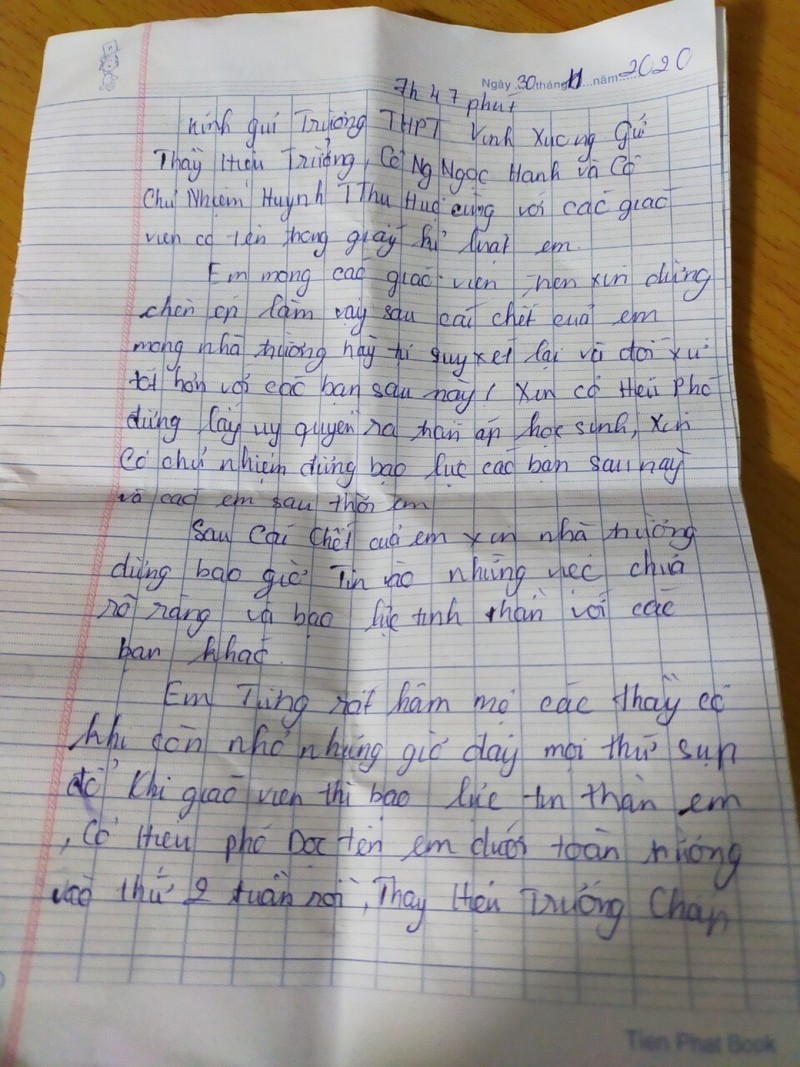 Ngày 30 tháng 11 năm 2020
7h 47 phút
Kính gửi Trường THPT Vĩnh Xương Gửi
Thầy Hiệu Trưởng, Cô Ng Ngọc Hạnh và Cô
Chủ Nhiệm Huỳnh T Thu Huệ cùng với các giáo
viên có tên trong giấy kỉ luật em.
Em mong các giáo viên trên xin đừng
chèn ép làm vậy sau cái chết của em
mong nhà trường hãy tự suy xét lại và đối xử
tốt hơn với các bạn sau này! Xin cô Hiệu Phó
đừng lấy uy quyền ra trấn áp học sinh, xin
Cô chủ nhiệm đừng bạo lực các bạn sau này
và các em sau thời em
Sau Cái Chết của em xin nhà trường
đừng bao giờ Tin vào những việc chưa
rõ ràng và bạo lực tinh thần với các
bạn khác.
Em Từng rất hâm mộ các thầy cô
khi còn nhỏ nhưng giờ đây mọi thứ sụp
đổ Khi giáo viên thì bạo lực tin thần em
, Cô Hiệu phó Đọc tên em dưới toàn trường
vào thứ 2 tuần rồi, Thầy Hiệu Trưởng Chấp
Tien Phat Book